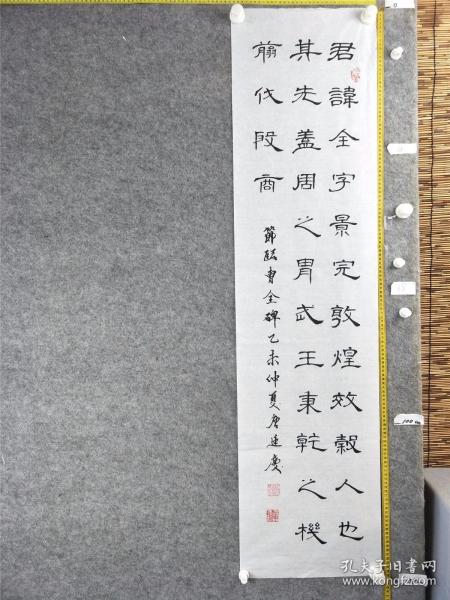 君諱全字景完敦煌效穀人也
其先蓋周之胄武王秉乾之機
翦伐殷商
節臨曹全碑乙未仲夏唐廷慶
100cm
孔夫子旧书网
www.kongfz.com